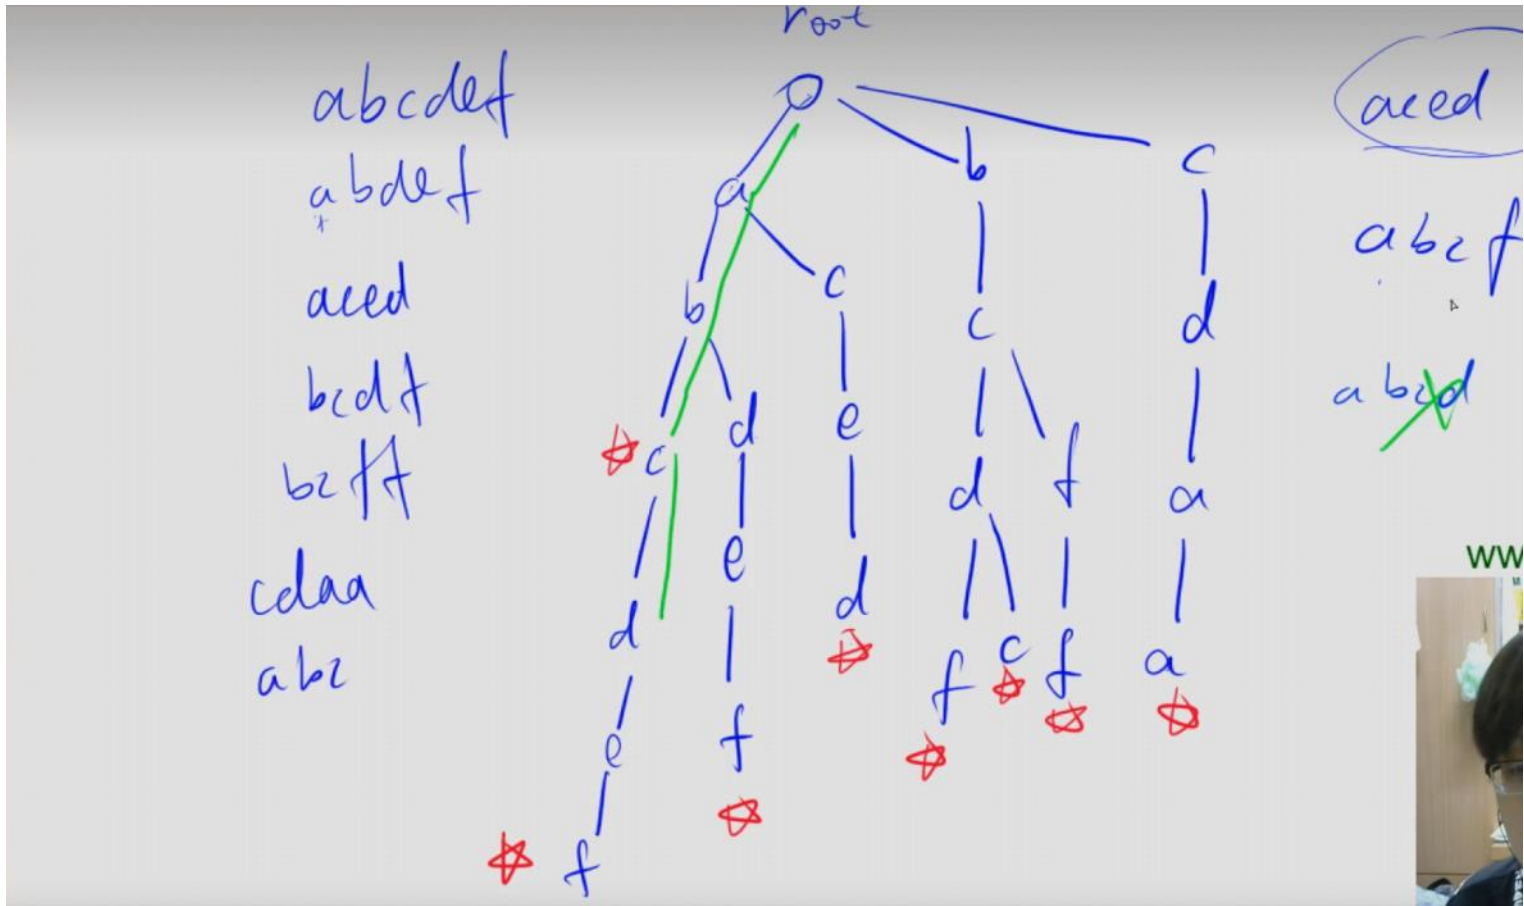 root
abcdef
abdef
aced
bcdf
bcff
cdaa
abc
a
b
c
b
c
c
d
c
d
e
d
f
a
d
e
d
f
c
f
a
e
f
f
aced
abcf
abcd
ww